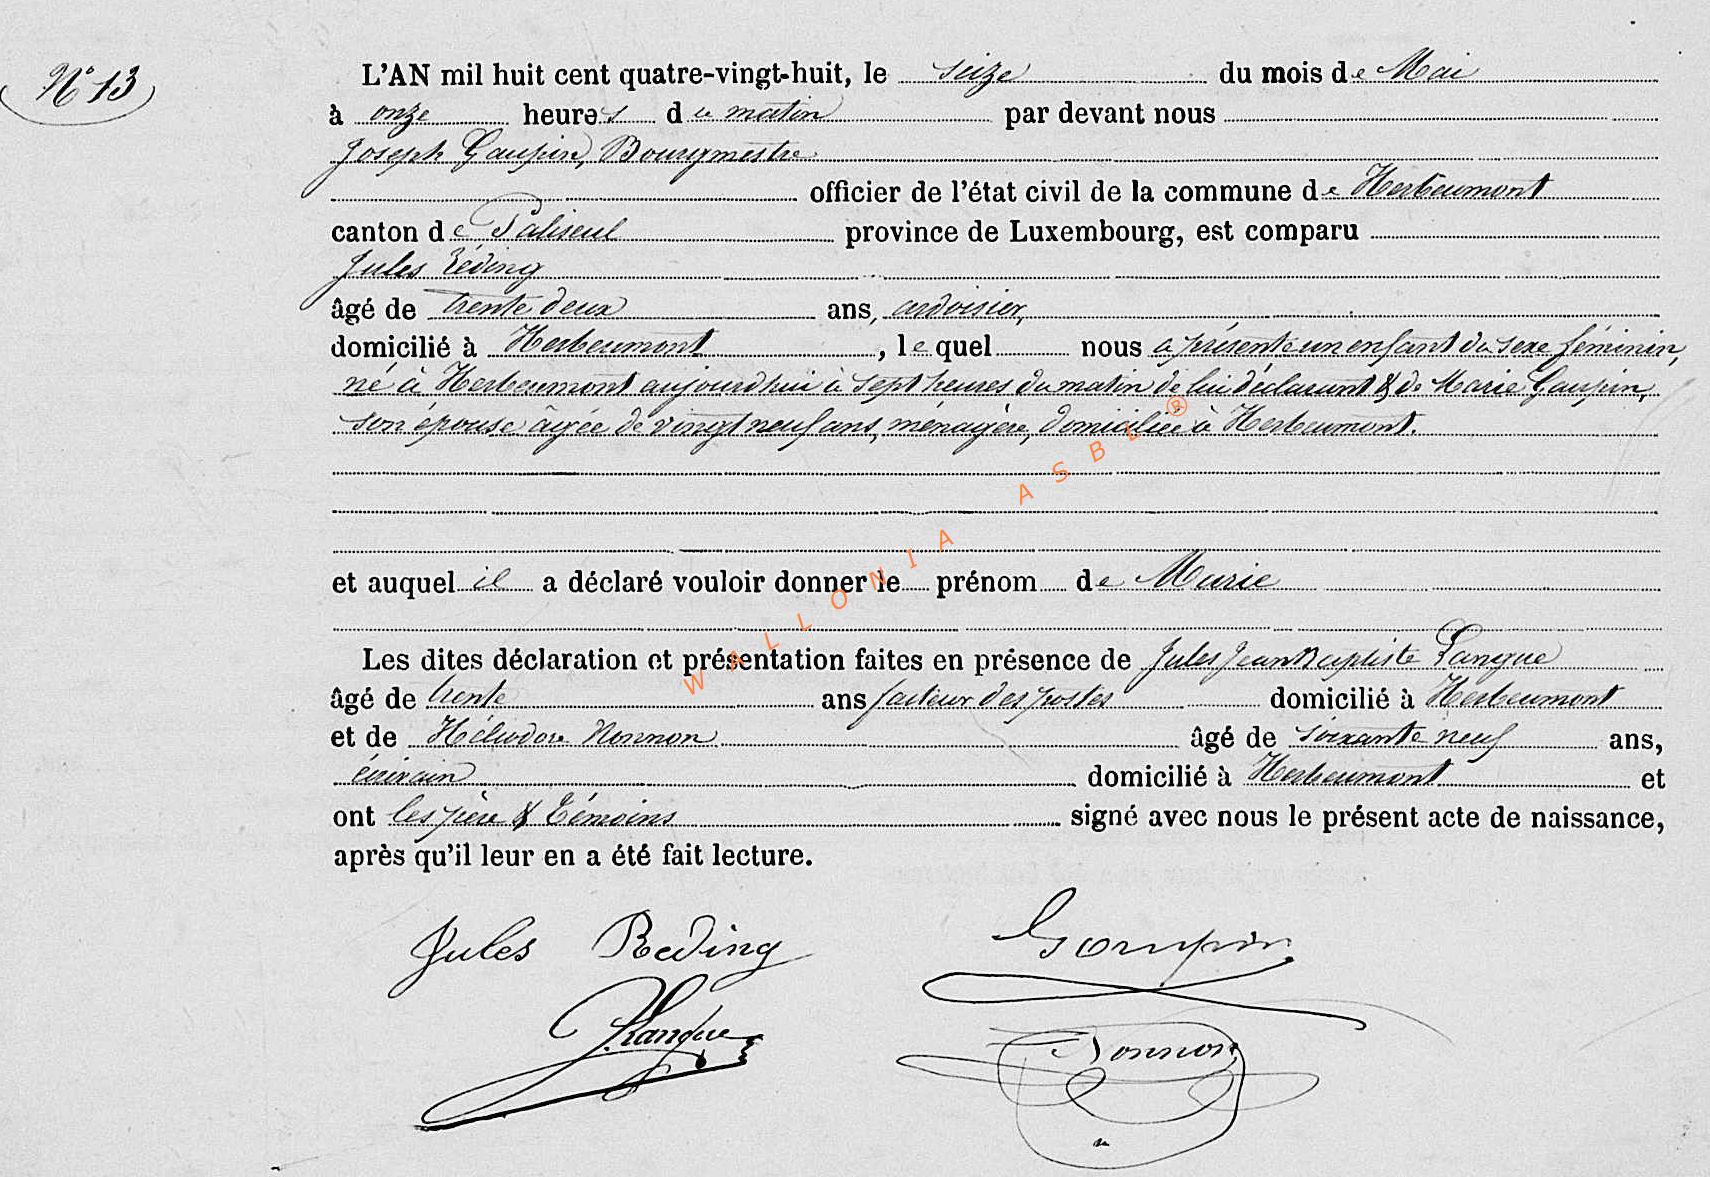 N° 13
L'AN mil huit cent quatre-vingt-huit, le seize du mois de Mai
à onze heures du matin par devant nous
Joseph Gaupin, Bourgmestre
officier de l'état civil de la commune de Herbeumont
canton de Paliseul province de Luxembourg, est comparu
Jules Réding
âgé de trente deux ans, ardoisier,
domicilié à Herbeumont, lequel nous a présenté un enfant du sexe féminin,
né à Herbeumont aujourd'hui à sept heures du matin de lui déclarant & de Marie Gaupin,
son épouse âgée de vingt neuf ans, ménagère, domiciliée à Herbeumont.
et auquel il a déclaré vouloir donner le prénom de Marie
Les dites déclaration et présentation faites en présence de Jules Jean Baptiste Langue
âgé de trente ans facteur des postes domicilié à Herbeumont
et de Héliodore Nonnon âgé de soixante neuf ans,
écrivain domicilié à Herbeumont et
ont les père & témoins signé avec nous le présent acte de naissance,
après qu'il leur en a été fait lecture.
Jules Reding Gaupin
Langue Nonnon
WALLONIA ASBL ®